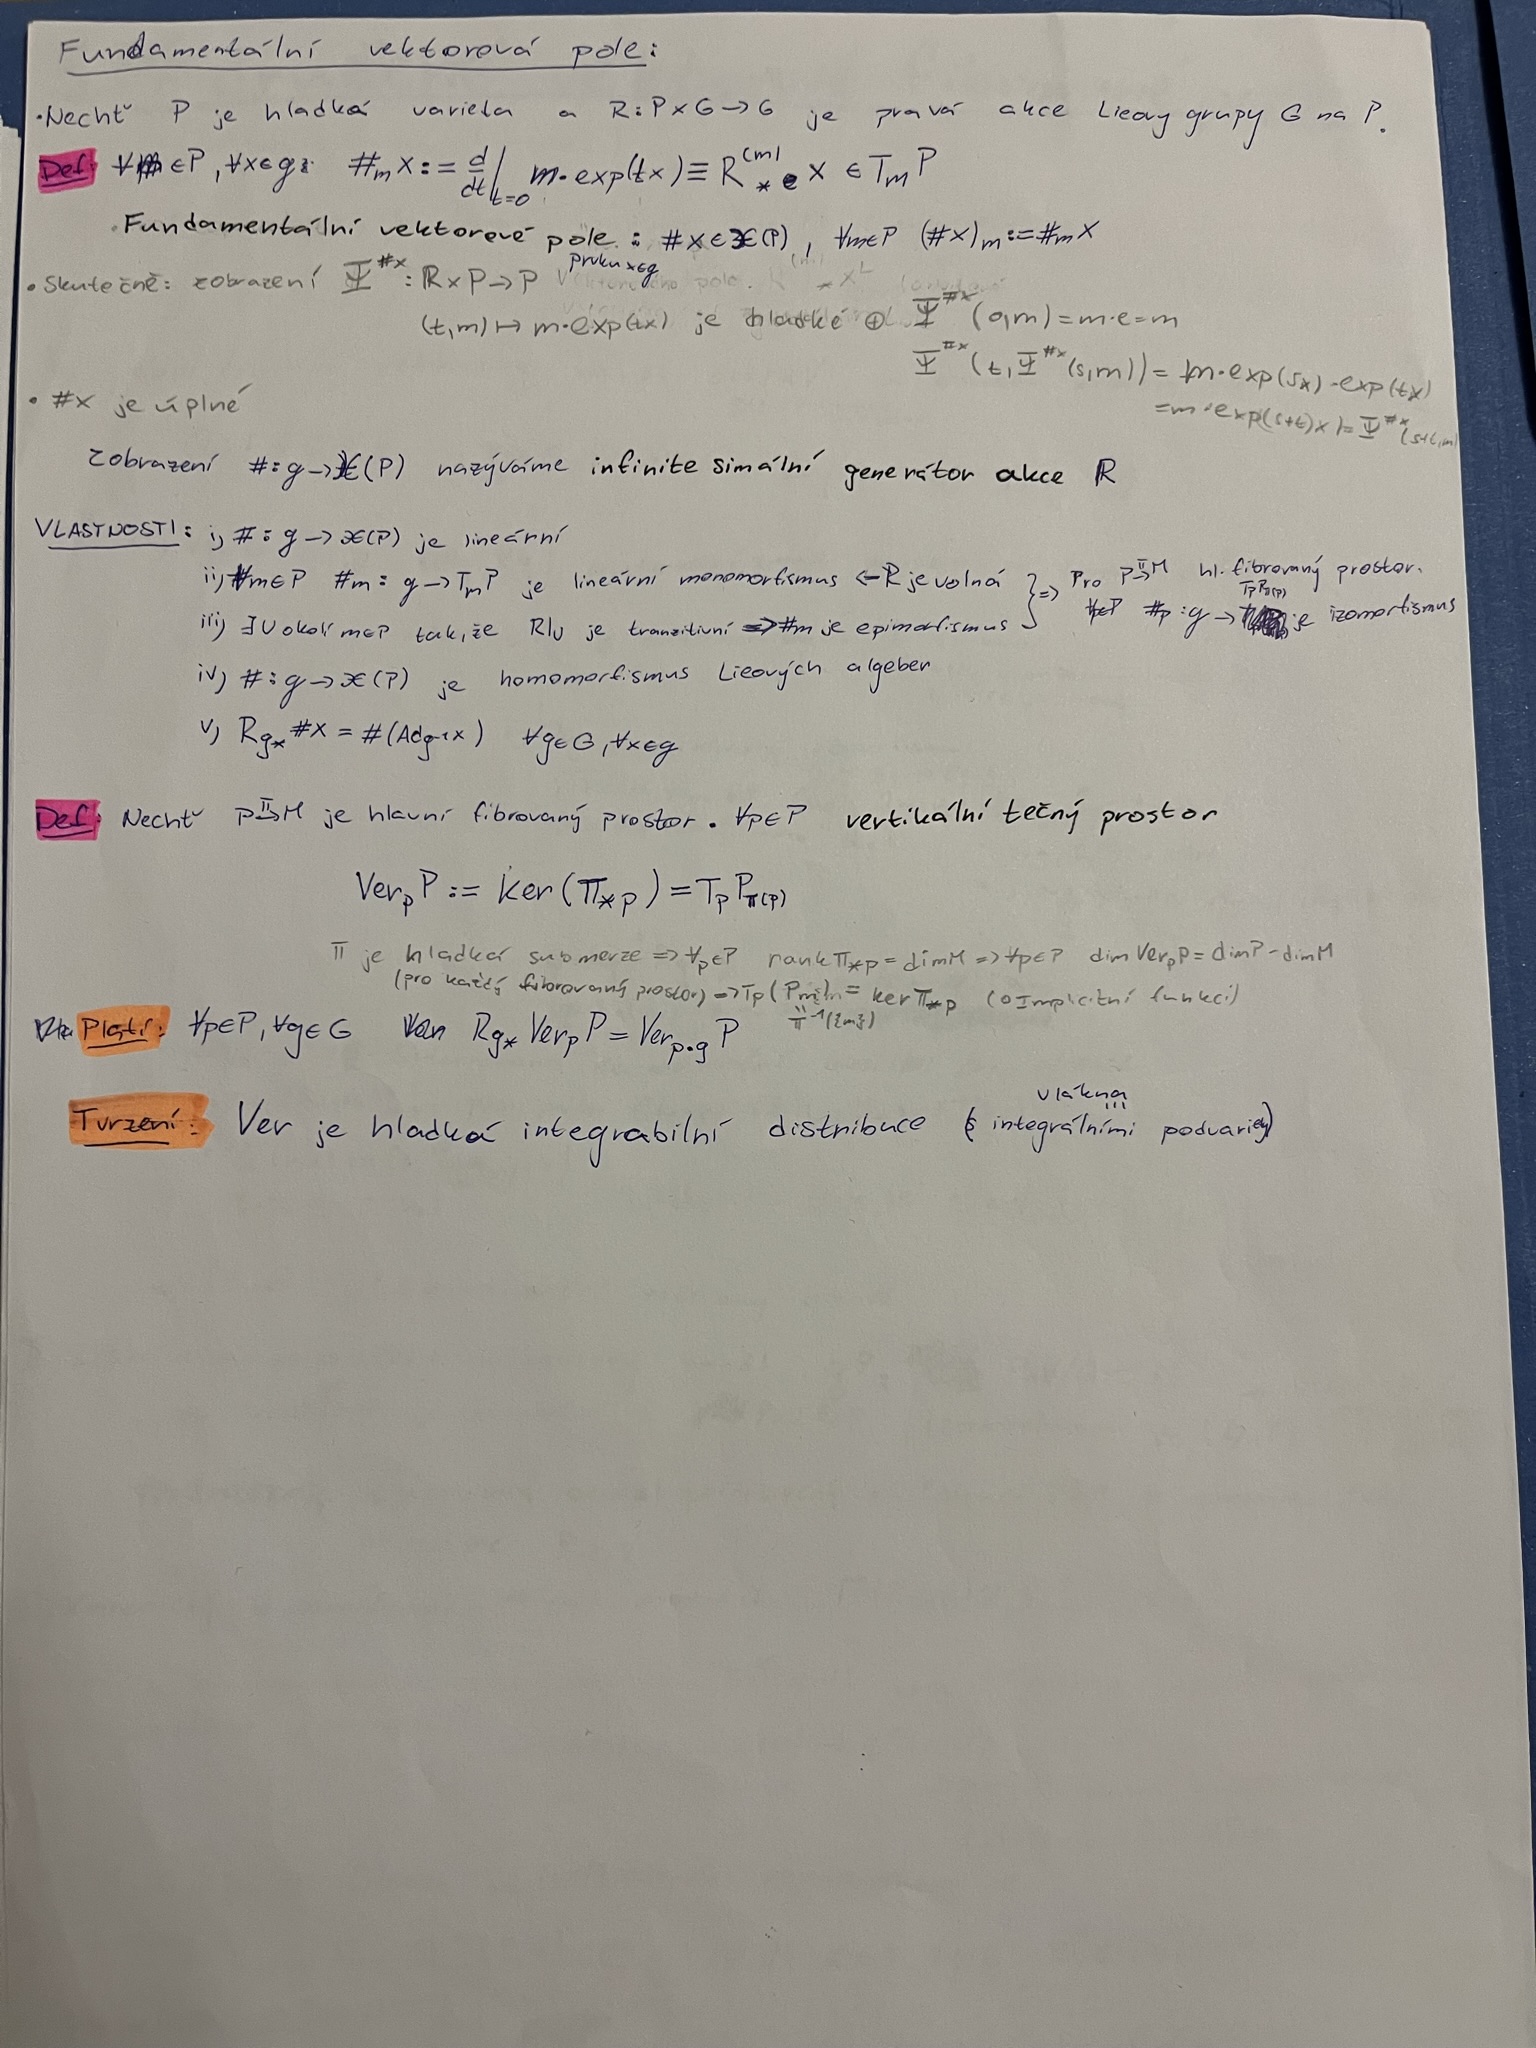 Fundamentální vektorová pole:
• Nechť P je hladká varieta a R: P×G→G je pravá akce Lieovy grupy G na P.
Def: ∀m∈P, ∀x∈g: #ₘX := d/dt|ₜ₌₀ m·exp(tx) ≡ R⁽ᵐ⁾_{*e} X ∈ TₘP
• Fundamentální vektorové pole : #X∈𝔛(P), ∀m∈P (#X)ₘ := #ₘX
prvku x∈g
• Skutečně: zobrazení Ψ^{#x} : ℝ×P→P
(t,m) ↦ m·exp(tx) je hladké ⊕ Ψ^{#x}(0,m) = m·e = m
Ψ^{#x}(t,Ψ^{#x}(s,m)) = m·exp(sx)·exp(tx)
= m·exp((s+t)x) = Ψ^{#x}(s+t,m)
• #x je úplné
Zobrazení #: g→𝔛(P) nazýváme infinitesimální generátor akce R
VLASTNOSTI: i) #: g→𝔛(P) je lineární
ii) ∀m∈P #m: g→TₘP je lineární monomorfismus ⇐ R je volná
iii) ∃U okolí m∈P tak, že R|ᵤ je tranzitivní ⇒ #m je epimorfismus
} ⇒ Pro P→^π M hl. fibrovaný prostor.
∀p∈P #p: g→ TₚP_{π(p)} je izomorfismus
iv) #: g→𝔛(P) je homomorfismus Lieových algeber
v) R_{g*} #X = #(Ad_{g⁻¹}x) ∀g∈G, ∀x∈g
Def: Nechť P→^π M je hlavní fibrovaný prostor. ∀p∈P vertikální tečný prostor
VerₚP := ker(π_{*p}) = TₚP_{π(p)}
π je hladká submerze ⇒ ∀p∈P rank π_{*p} = dim M ⇒ ∀p∈P dim VerₚP = dim P - dim M
(pro každý fibrovaný prostor) ⇒ Tₚ(Pₘ) = ker π_{*p} (o Implicitní funkci)
π⁻¹({m})
Platí: ∀p∈P, ∀g∈G R_{g*} VerₚP = Ver_{p·g} P
vlákna
Tvrzení: Ver je hladká integrabilní distribuce (s integrálními podvariety)